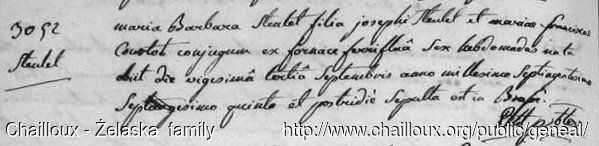 3052 maria Barbara Steulet filia josephi Steulet et mariæ franciscæ
Steulet Courtot conjugum ex fornace ferrifluâ sex hebdomadas nata
obiit die vigesimâ tertiâ Septembris anno millesimo Septingentesimo
Septuagesimo quinto et postridiè Sepulta est in
Chailloux - Żelaska family http://www.chailloux.org/public/geneal/